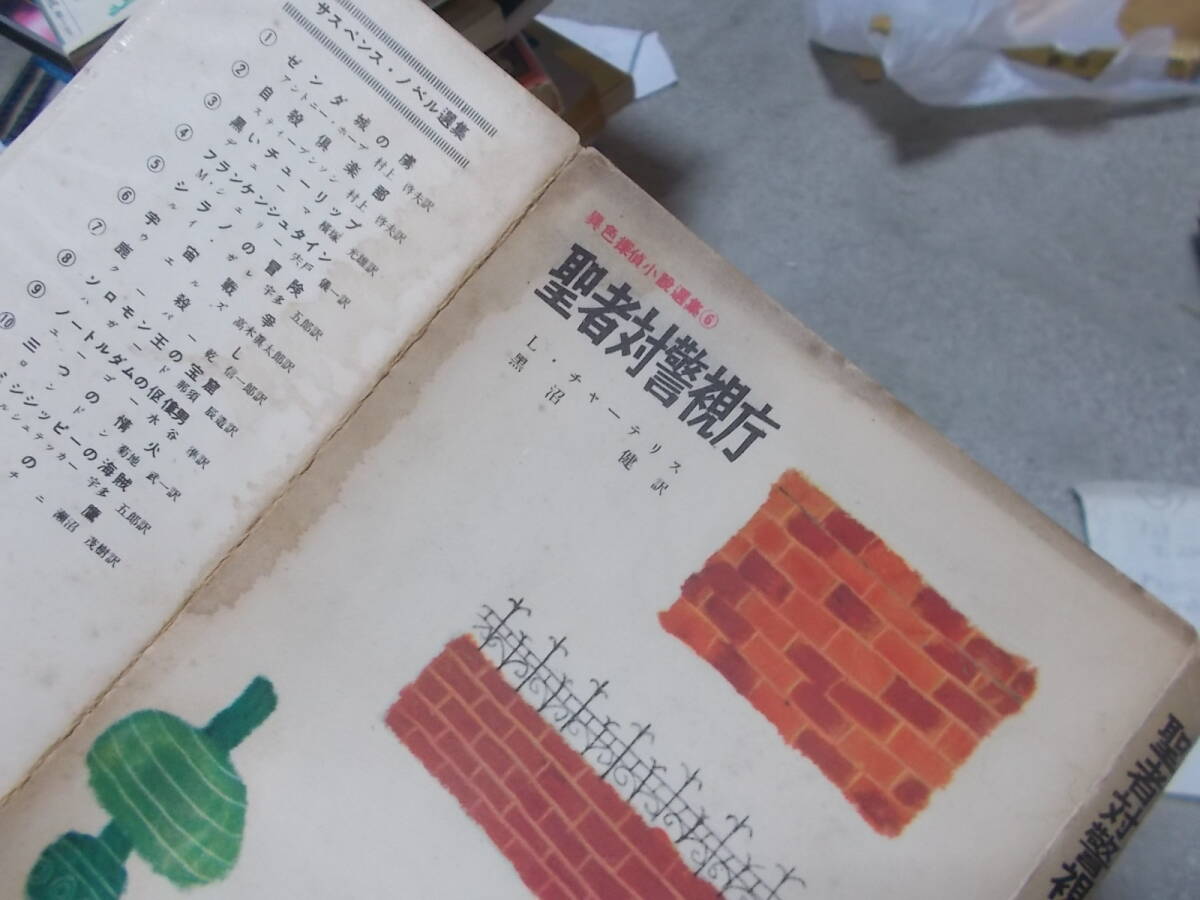 サスペンス・ノベル選集
① ゼンダ城の虜
アントニー・ホープ 村上 啓夫訳
② 自殺倶楽部
スティーブンソン 村上 啓夫訳
③ 黒いチューリップ
デューマ 横塚 光雄訳
④ フランケンシュタイン
M・シェリー 宍戸 儀一訳
⑤ シラノの冒険
ルイ・ガレ 宇多 五郎訳
⑥ 宇宙戦争
ウエルズ 高木眞太郎訳
⑦ 鹿殺し
クーパー 乾 信一郎訳
⑧ ソロモン王の宝窟
ハガード 那須 辰造訳
⑨ ノートルダムの伛僂男
ユーゴー 水谷 準訳
⑩ 三つの情火
ロンドン 菊地 武一訳
ミシシッピーの海賊
ルシュテッカー 宇多 五郎訳
の鷹
チニ 瀬沼 茂樹訳
異色探偵小説選集⑥
聖者対警視庁
L・チャーテリス
黒沼 健訳
聖者対警視